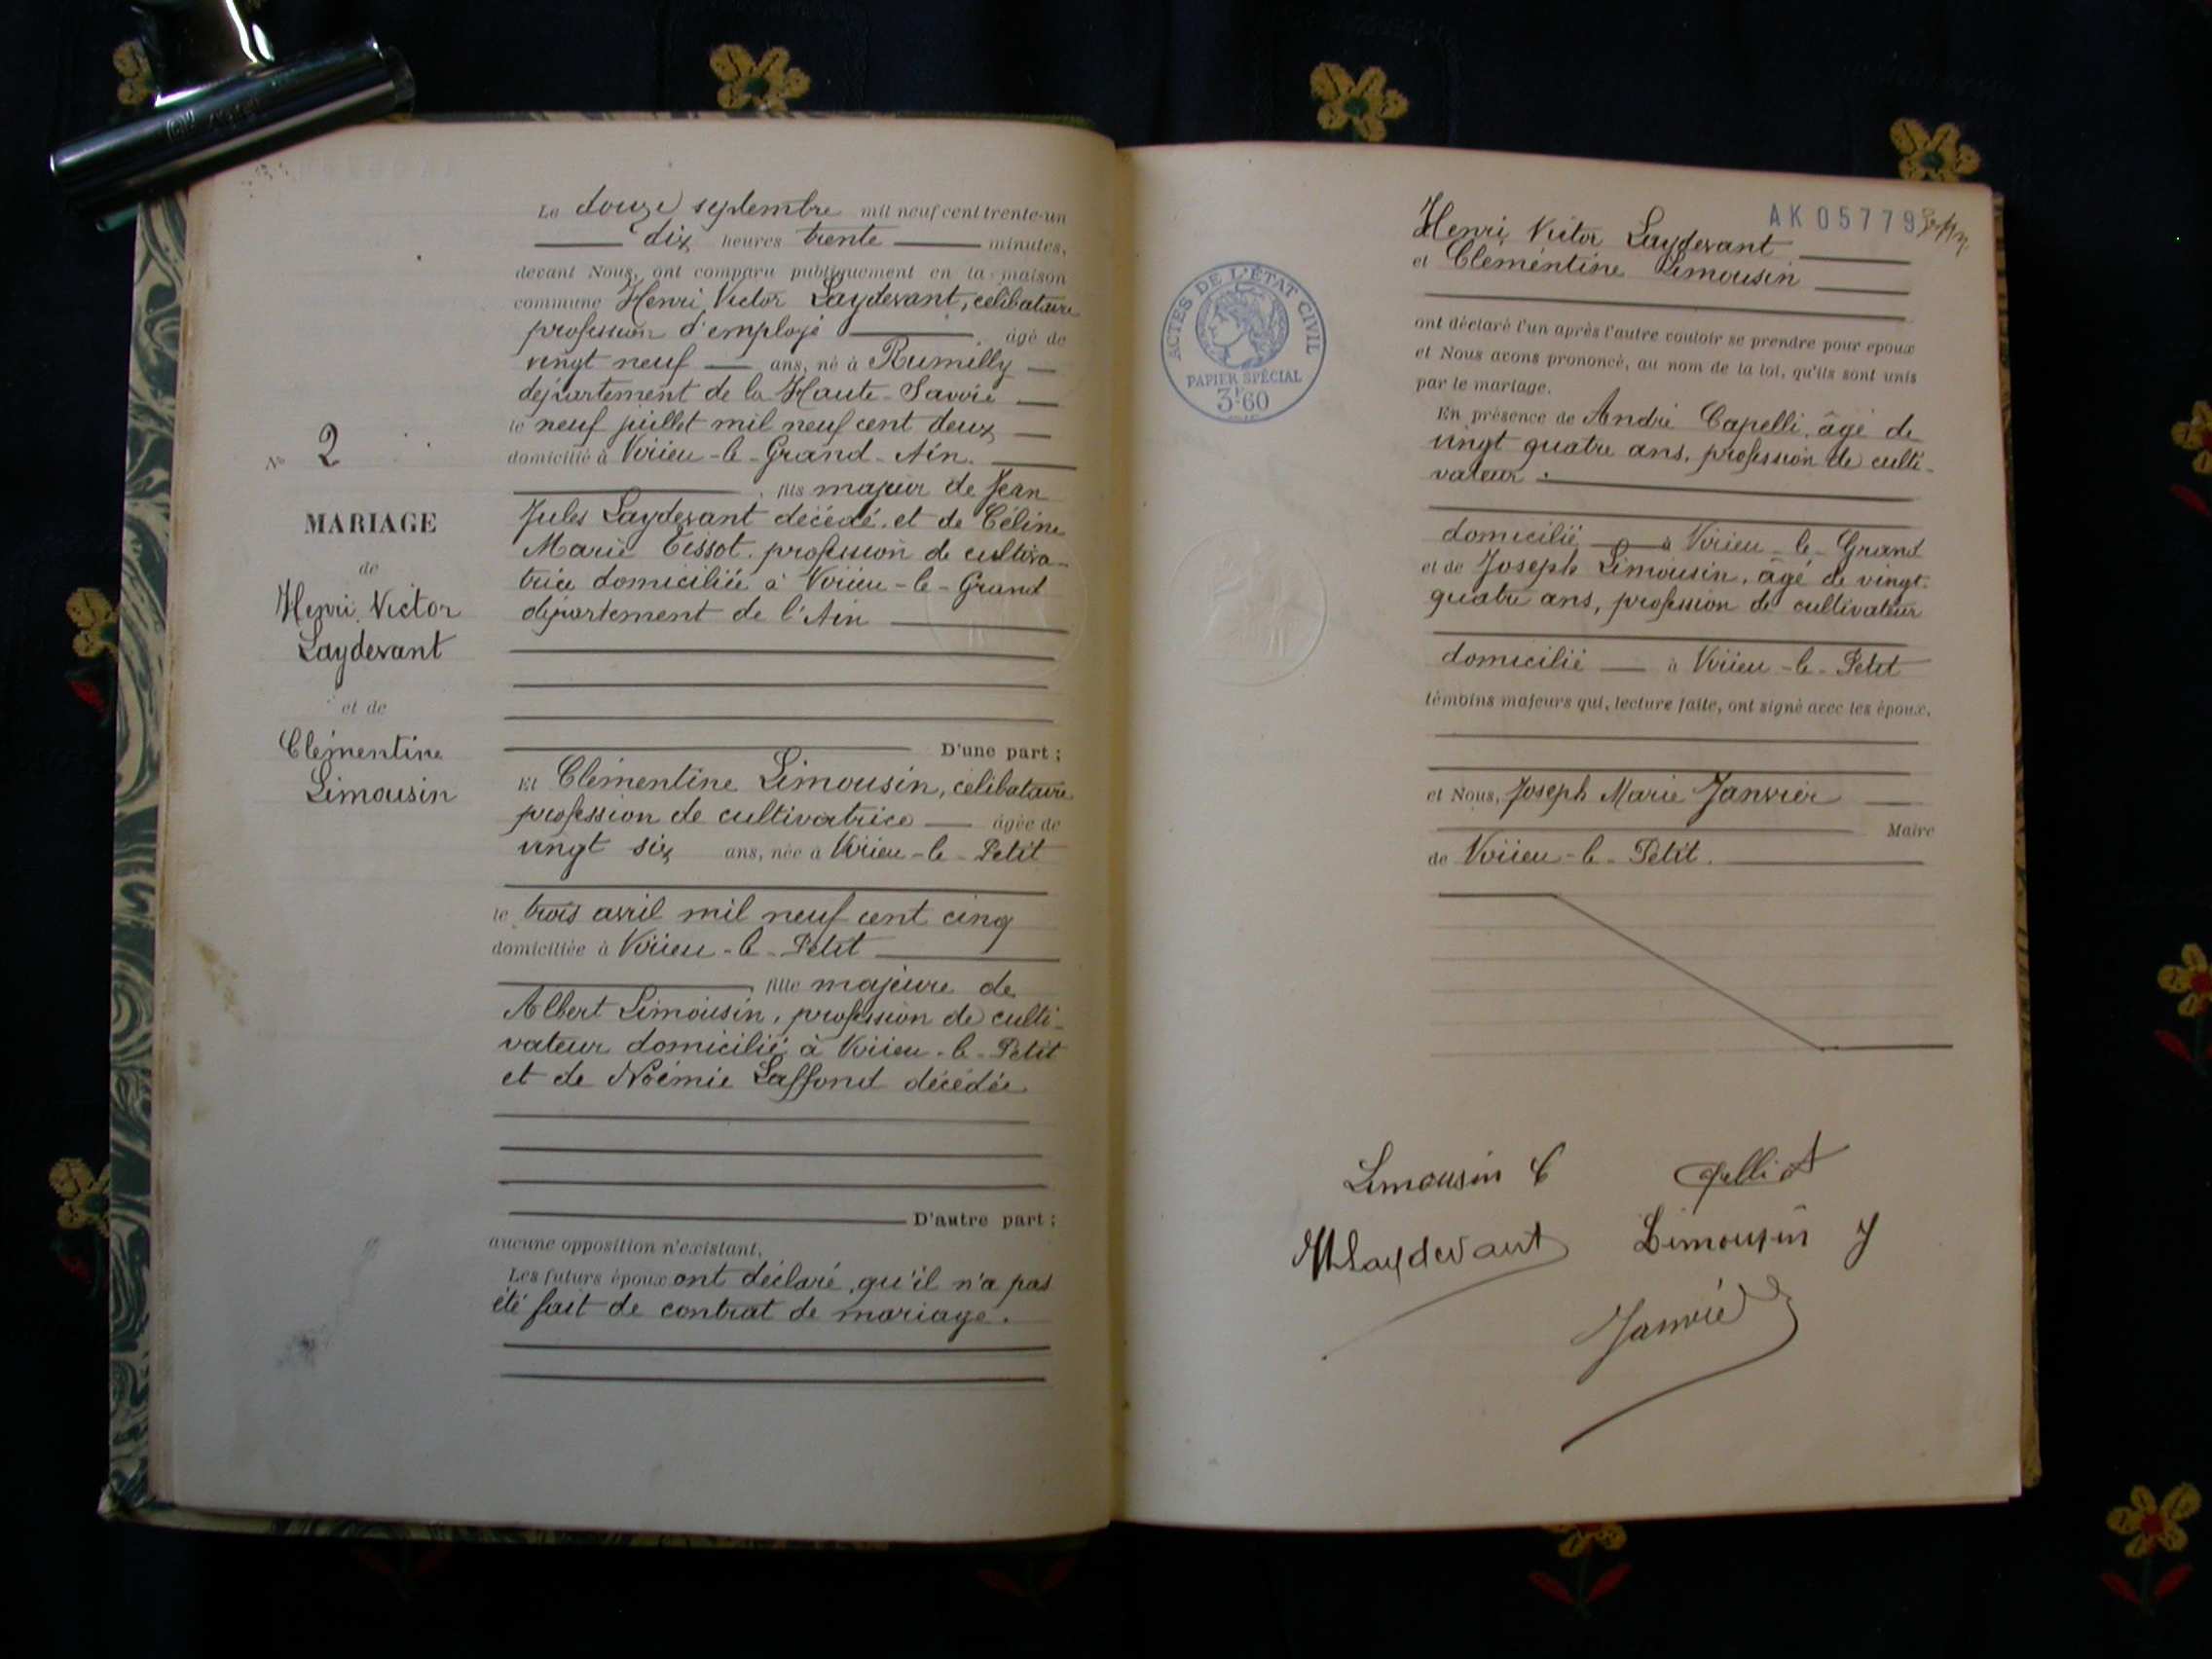 Le douze septembre mil neuf cent trente-un
dix heures trente minutes,
devant Nous, ont comparu publiquement en la maison
commune Henri Victor Laydevant, célibataire
profession d'employé âgé de
vingt neuf ans, né à Rumilly
département de la Haute-Savoie
le neuf juillet mil neuf cent deux
domicilié à Virieu-le-Grand-Ain.
, fils majeur de Jean
Jules Laydevant décédé et de Céline
Marie Tissot, profession de cultiva-
trice domiciliée à Virieu-le-Grand
département de l'Ain
D'une part ;
Et Clémentine Limousin, célibataire
profession de cultivatrice âgée de
vingt six ans, née à Virieu-le-Petit
le trois avril mil neuf cent cinq
domiciliée à Virieu-le-Petit
, fille majeure de
Albert Limousin, profession de culti-
vateur domicilié à Virieu-le-Petit
et de Noémie Laffond décédée
D'autre part ;
aucune opposition n'existant.
Les futurs époux ont déclaré, qu'il n'a pas
été fait de contrat de mariage.
No 2
MARIAGE
de
Henri Victor
Laydevant
et de
Clémentine
Limousin
AK 05779
ACTES DE L'ÉTAT CIVIL
PAPIER SPÉCIAL
3F60
Henri Victor Laydevant
et Clémentine Limousin
ont déclaré l'un après l'autre vouloir se prendre pour époux
et Nous avons prononcé, au nom de la loi, qu'ils sont unis
par le mariage.
En présence de André Capelli, âgé de
vingt quatre ans, profession de culti-
vateur
domicilié à Virieu-le-Grand
et de Joseph Limousin, âgé de vingt-
quatre ans, profession de cultivateur
domicilié à Virieu-le-Petit
témoins majeurs qui, lecture faite, ont signé avec les époux,
et Nous, Joseph Marie Janvier
Maire
de Virieu-le-Petit.
Limousin C
Laydevant
Limousin J